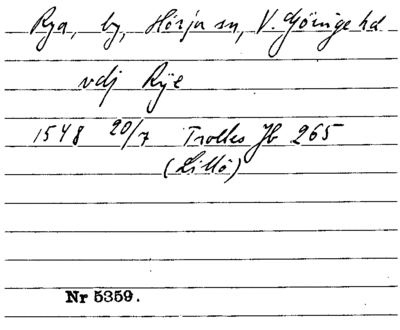 Rya, by, Hörja sn, V. Göinge hd
vdj Rÿe
1548 20/7 Trolles Jb 265
(Lillö)
Nr 5359.